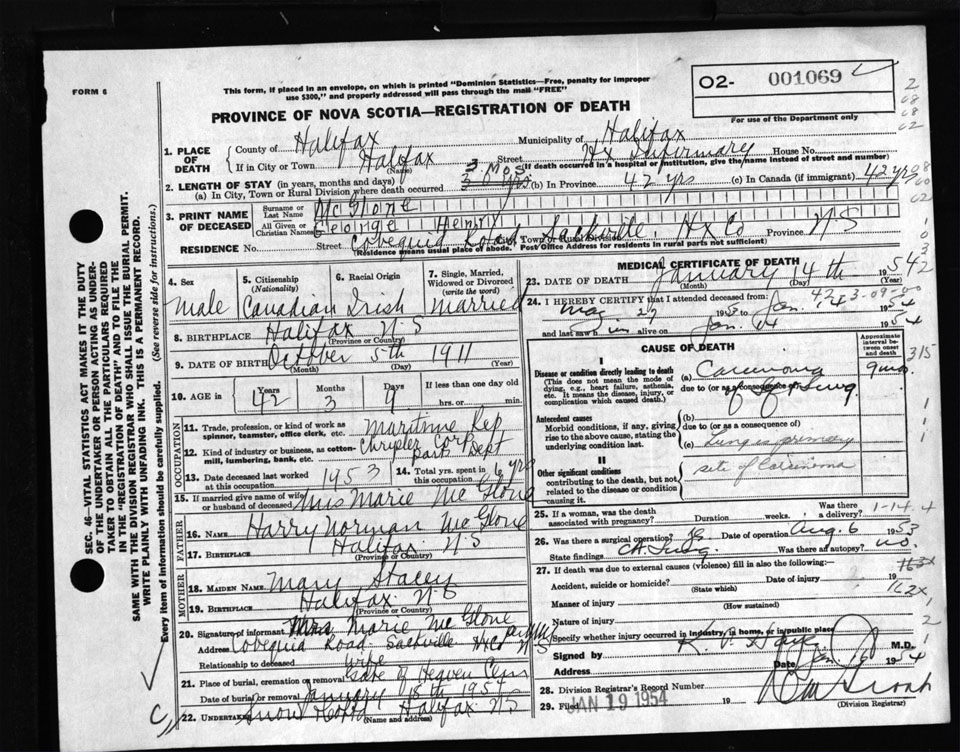 FORM 6
This form, if placed in an envelope, on which is printed "Dominion Statistics—Free, penalty for improper
use $300," and properly addressed will pass through the mail "FREE"
O2- 001069
For use of the Department only
2
08
08
02
PROVINCE OF NOVA SCOTIA—REGISTRATION OF DEATH
1. PLACE OF DEATH
County of Halifax
Municipality of Halifax
If in City or Town Halifax Street Hx Infirmary House No.
(Name) (If death occurred in a hospital or institution, give the name instead of street and number)
2. LENGTH OF STAY (in years, months and days) 3 mos
(a) In City, Town or Rural Division where death occurred (b) In Province 42 yrs (c) In Canada (if immigrant) 42 yrs
3. PRINT NAME OF DECEASED
Surname or Last Name McGlone
All Given or Christian Names George Henry
RESIDENCE No. Street Cobequid Road City, Town or Rural Division Sackville, Hx Co Province N-S
(Residence means usual place of abode. Post Office Address for residents in rural parts not sufficient)
4. Sex
Male
5. Citizenship (Nationality)
Canadian
6. Racial Origin
Irish
7. Single, Married, Widowed or Divorced (write the word)
Married
8. BIRTHPLACE Halifax N-S
(Province or Country)
9. DATE OF BIRTH October 5th 1911
(Month) (Day) (Year)
10. AGE in Years Months Days If less than one day old
42 3 9 hrs. or min.
OCCUPATION
11. Trade, profession, or kind of work as spinner, teamster, office clerk, etc. Maritime Rep
12. Kind of industry or business, as cotton-mill, lumbering, bank, etc. Chrysler Corp Parts Dept
13. Date deceased last worked at this occupation 1953
14. Total yrs. spent in this occupation 6 yrs
15. If married give name of wife or husband of deceased Mrs Marie McGlone
FATHER
16. NAME Harry Norman McGlone
17. BIRTHPLACE Halifax N-S
(Province or Country)
MOTHER
18. MAIDEN NAME Mary Stacey
19. BIRTHPLACE Halifax N-S
(Province or Country)
20. Signature of informant Mrs Marie McGlone
Address Cobequid Road Sackville Hx Co N-S
Relationship to deceased wife
21. Place of burial, cremation or removal Gate of Heaven Cem
Date of burial or removal January 18th 1954
22. UNDERTAKER Snow Halifax N-S
(Name and address)
MEDICAL CERTIFICATE OF DEATH
23. DATE OF DEATH January 14th 1954
(Month) (Day)
24. I HEREBY CERTIFY that I attended deceased from:
27 1953 to Jan. 1954
and last saw h im alive on Jan 14 1954
CAUSE OF DEATH
Approximate interval between onset and death
I
Disease or condition directly leading to death
(This does not mean the mode of dying, e.g., heart failure, asthenia, etc. It means the disease, injury, or complication which caused death.)
(a) Carcinoma 9 mos.
due to (or as a consequence of)
of Lung
Antecedent causes
Morbid conditions, if any, giving rise to the above cause, stating the underlying condition last.
(b)
due to (or as a consequence of)
(c) Lung is primary
II
Other significant conditions
contributing to the death, but not related to the disease or condition causing it.
site of Carcinoma
25. If a woman, was the death associated with pregnancy? Duration weeks. Was there a delivery?
1-14.4
26. Was there a surgical operation? Date of operation Aug. 6 1953
State findings Ca Lung. Was there an autopsy? no.
27. If death was due to external causes (violence) fill in also the following:—
Accident, suicide or homicide? Date of injury 19
(State which)
162x
Manner of injury
(How sustained)
Nature of injury
Specify whether injury occurred in industry, in home, or in public place
Signed by M.D.
Address Date Jan. 1954
28. Division Registrar's Record Number
29. Filed JAN 19 1954 19
(Division Registrar)
SEC. 46—VITAL STATISTICS ACT MAKES IT THE DUTY
OF THE UNDERTAKER OR PERSON ACTING AS UNDER-
TAKER TO OBTAIN ALL THE PARTICULARS REQUIRED
IN THE "REGISTRATION OF DEATH" AND TO FILE THE
SAME WITH THE DIVISION REGISTRAR WHO SHALL ISSUE THE BURIAL PERMIT.
WRITE PLAINLY WITH UNFADING INK. THIS IS A PERMANENT RECORD.
Every item of information should be carefully supplied. (See reverse side for instructions.)